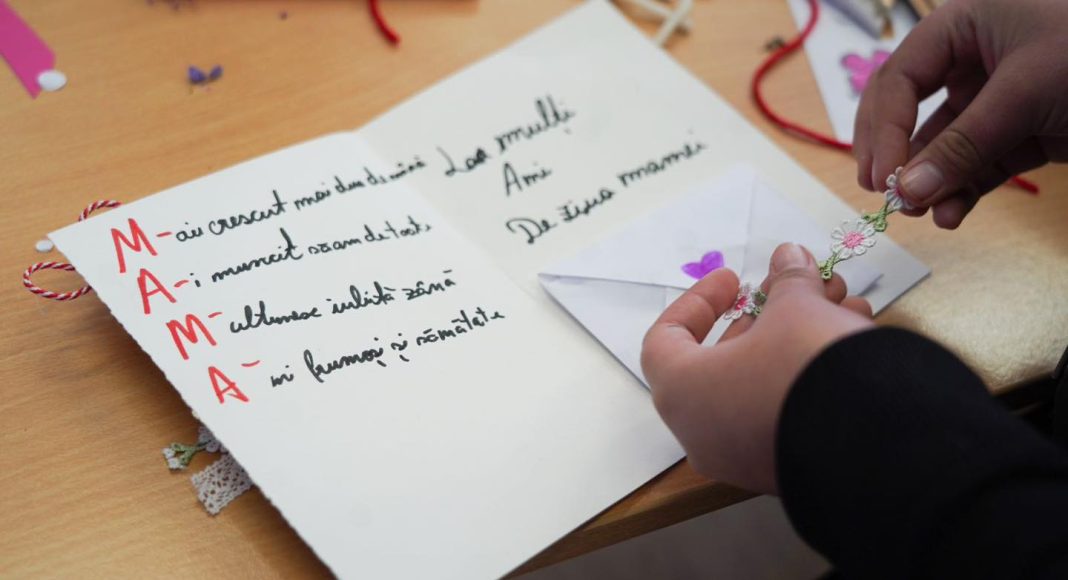 M-ai crescut mai dus de mână
A-i muncit săam de toate
M-ultumesc iubită zână
A-ni frumoși și sămătate
La mulți
Ani
De ziua mamei